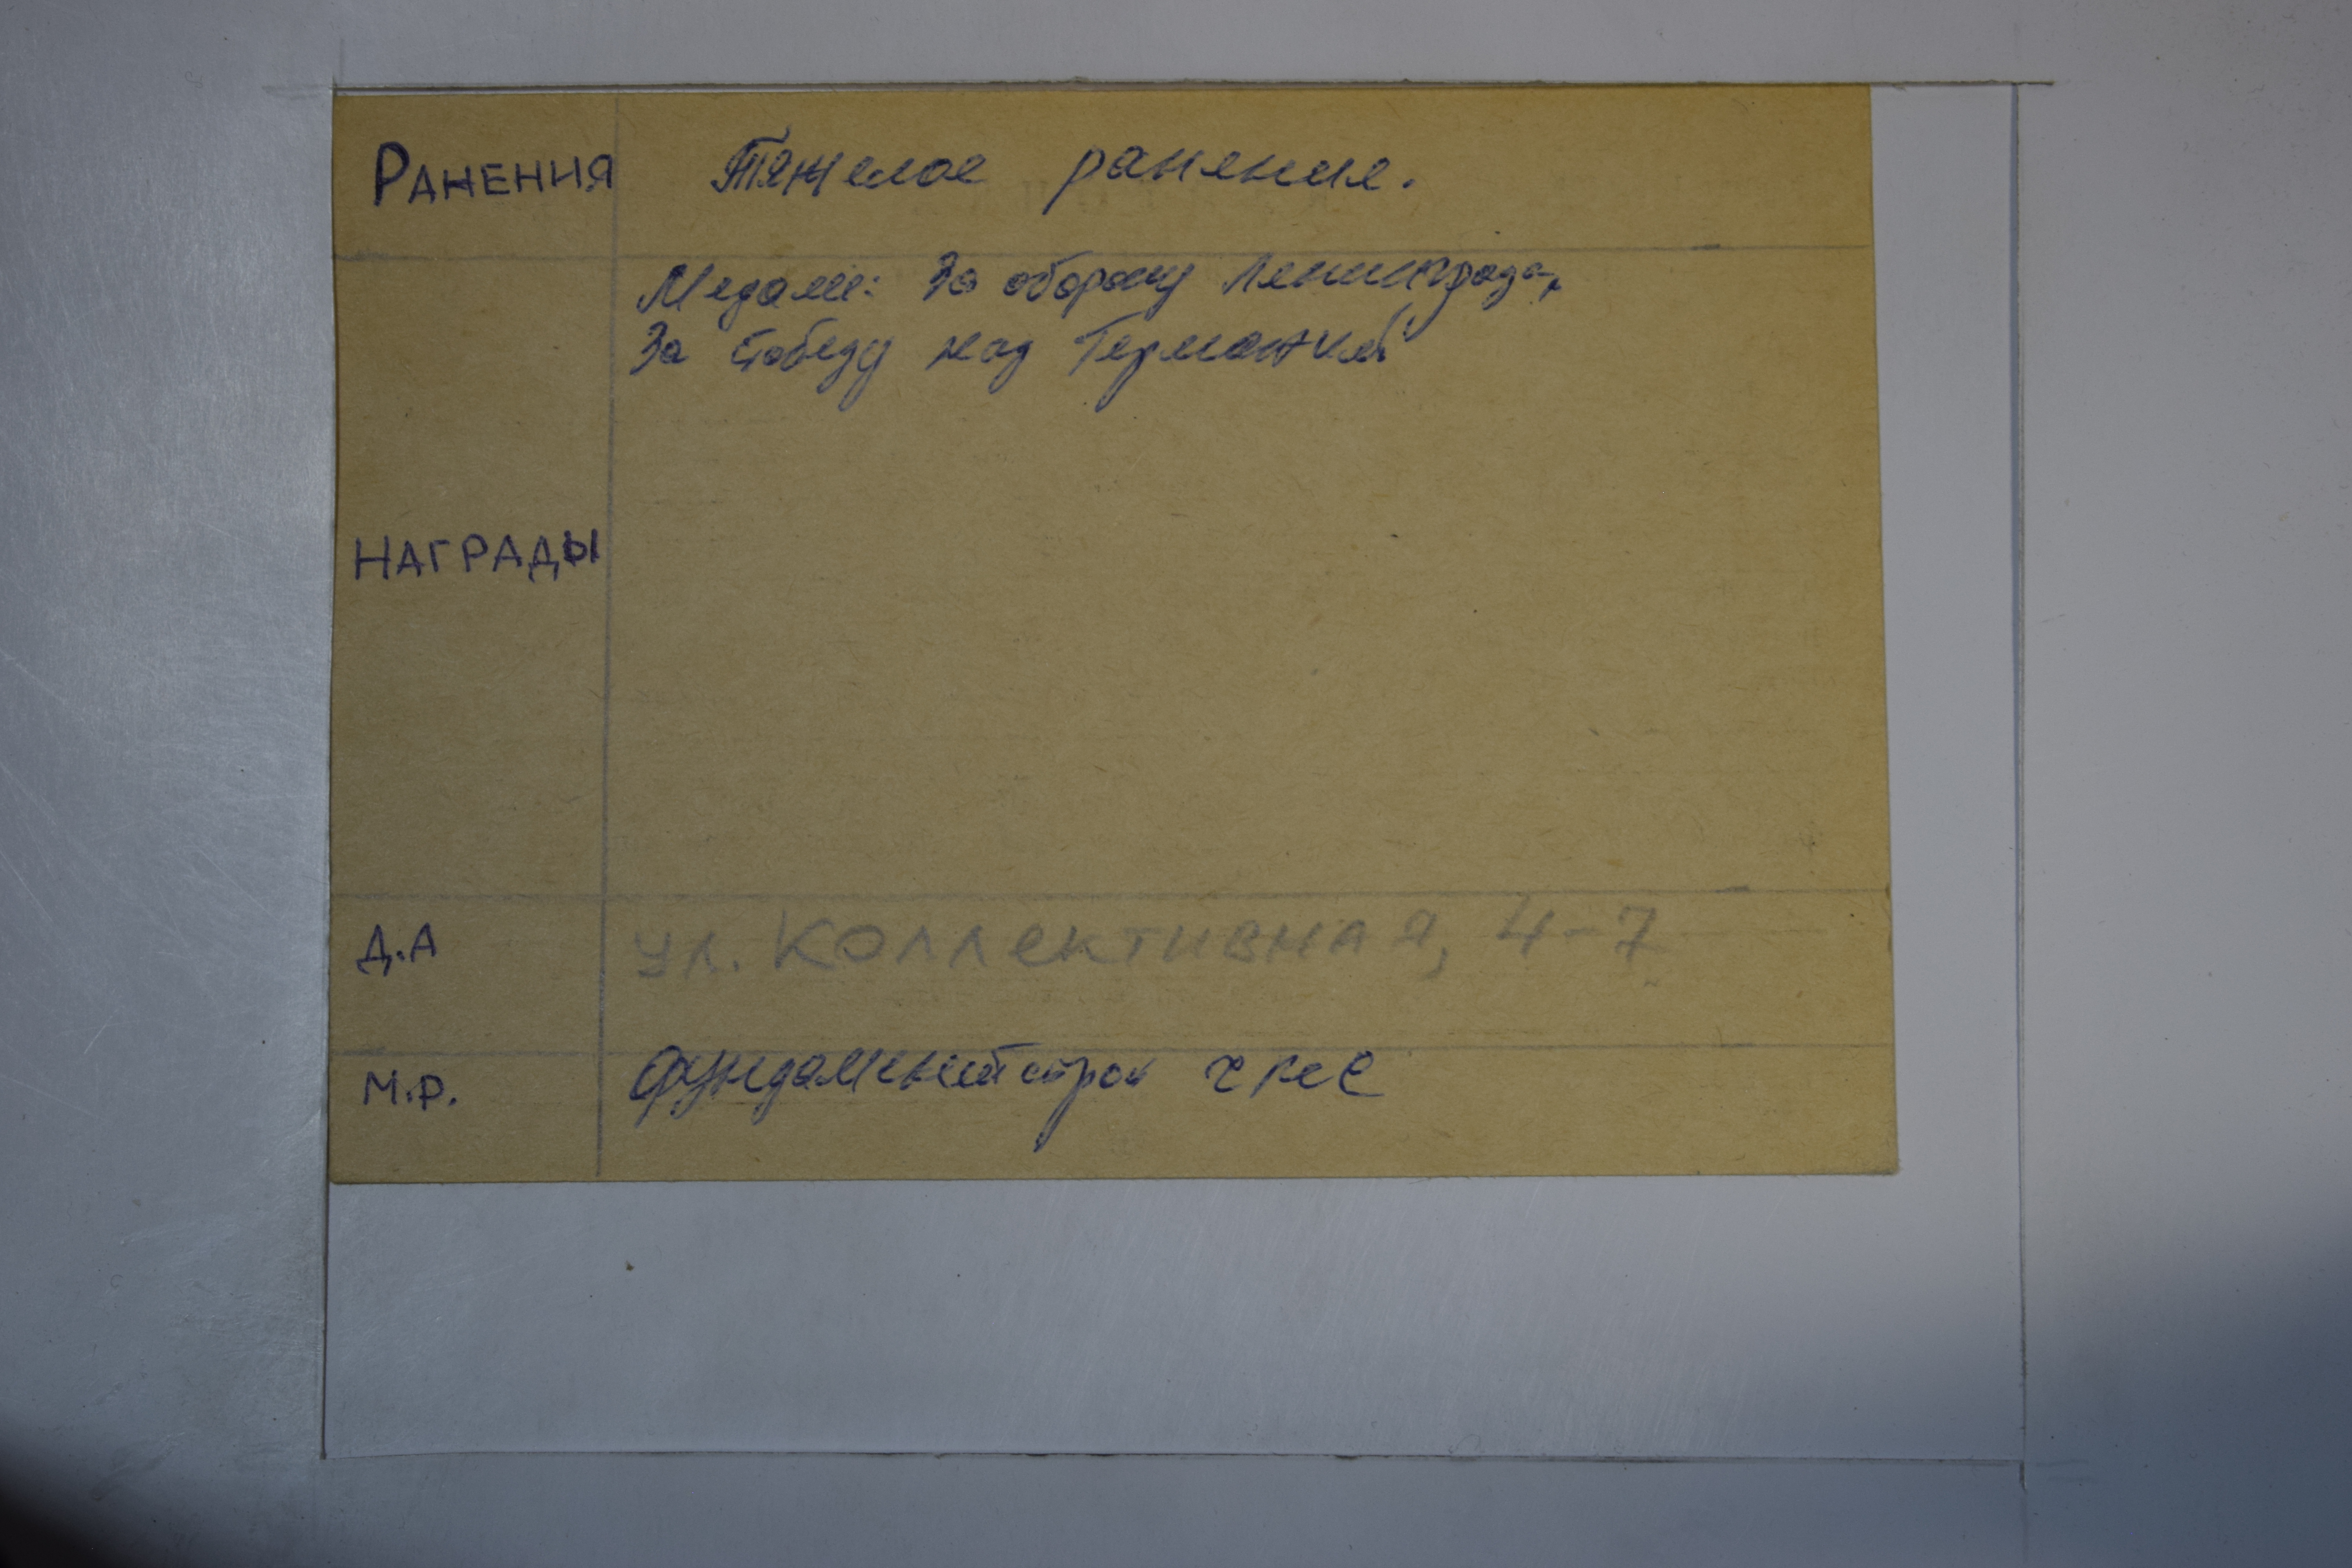 РАНЕНИЯ Тяжелое ранение.
Медали: За оборону Ленинграда,
За победу над Германией
НАГРАДЫ
Д.А ул. Коллективная, 4-7
М.Р. Фундаментстрой